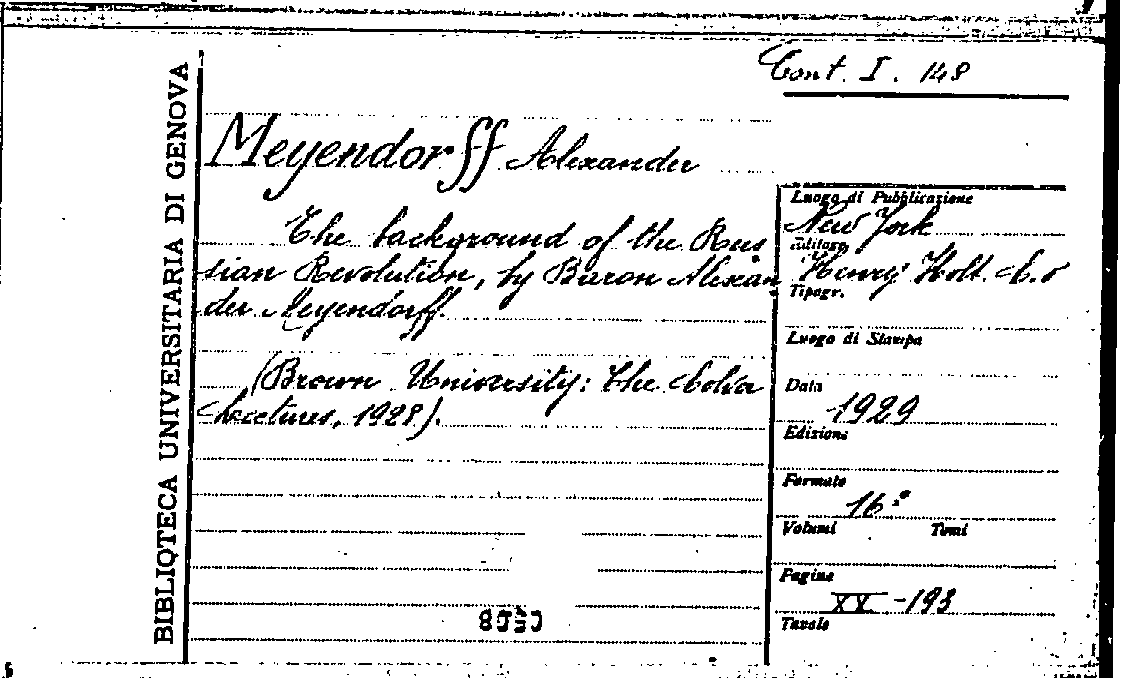 Cont. I. 148
BIBLIOTECA UNIVERSITARIA DI GENOVA
Meyendorff Alexander
The background of the Rus
sian Revolution, by Baron Alexan
der Meyendorff.
(Brown University: The Colver
Lectures, 1928).
Luogo di Pubblicazione
New York
Editore
Henry Holt &
Tipogr.
Luogo di Stampa
Data
1929
Edizione
Formato
16°
Volumi Tomi
Pagine
XV-193
Tavole